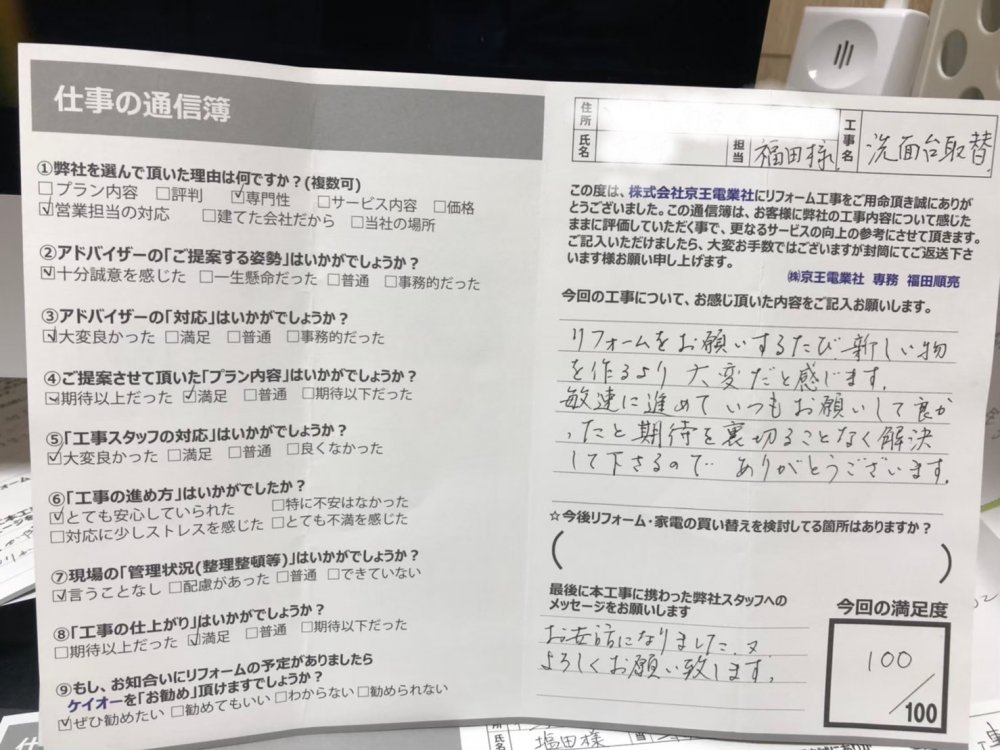 仕事の通信簿
①弊社を選んで頂いた理由は何ですか？(複数可)
□プラン内容 □評判 ☑専門性 □サービス内容 □価格
☑営業担当の対応 □建てた会社だから □当社の場所
②アドバイザーの「ご提案する姿勢」はいかがでしょうか？
☑十分誠意を感じた □一生懸命だった □普通 □事務的だった
③アドバイザーの「対応」はいかがでしょうか？
☑大変良かった □満足 □普通 □事務的だった
④ご提案させて頂いた「プラン内容」はいかがでしょうか？
☑期待以上だった ☑満足 □普通 □期待以下だった
⑤「工事スタッフの対応」はいかがでしょうか？
☑大変良かった □満足 □普通 □良くなかった
⑥「工事の進め方」はいかがでしたか？
☑とても安心していられた □特に不安はなかった
□対応に少しストレスを感じた □とても不満を感じた
⑦現場の「管理状況(整理整頓等)」はいかがでしょうか？
☑言うことなし □配慮があった □普通 □できていない
⑧「工事の仕上がり」はいかがでしょうか？
□期待以上だった ☑満足 □普通 □期待以下だった
⑨もし、お知合いにリフォームの予定がありましたら
ケイオーを「お勧め」頂けますでしょうか？
☑ぜひ勧めたい □勧めてもいい □わからない □勧められない
住所
氏名
担当 福田様
工事名 洗面台取替
この度は、株式会社京王電業社にリフォーム工事をご用命頂き誠にありが
とうございました。この通信簿は、お客様に弊社の工事内容について感じた
ままに評価していただく事で、更なるサービスの向上の参考にさせて頂きます。
ご記入いただけましたら、大変お手数ではございますが封筒にてご返送下さ
います様お願い申し上げます。
㈱京王電業社 専務 福田順亮
今回の工事について、お感じ頂いた内容をご記入お願いします。
リフォームをお願いするたび新しい物
を作るより大変だと感じます。
敏速に進めていつもお願いして良か
ったと期待を裏切ることなく解決
して下さるので ありがとうございます。
☆今後リフォーム・家電の買い替えを検討してる箇所はありますか？
( )
最後に本工事に携わった弊社スタッフへの
メッセージをお願いします
お世話になりました。又
よろしくお願い致します。
今回の満足度
100
/100
氏名
塩田様